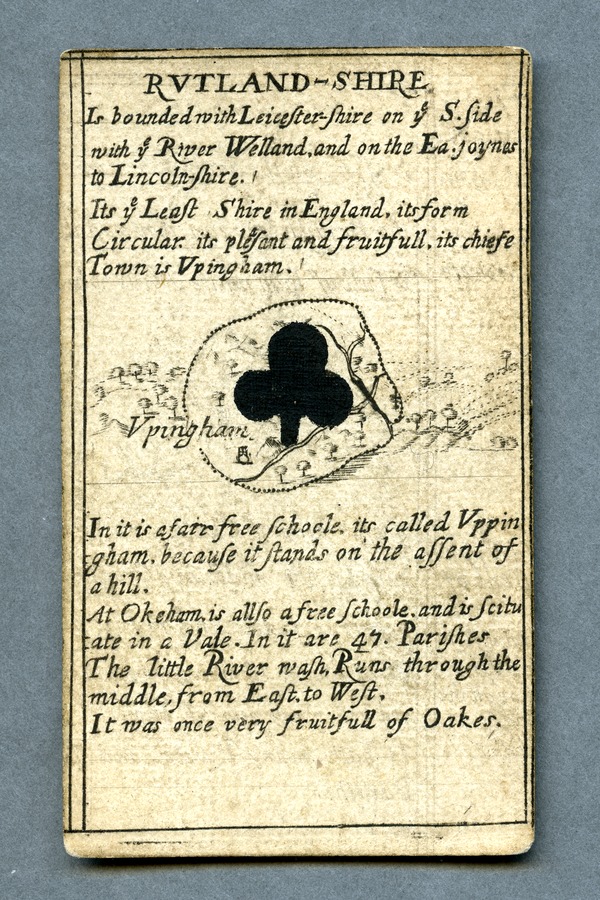 RVTLAND-SHIRE
Is bounded with Leicester-shire on yͤ S. side
with yͤ River Welland, and on the Ea. joynes
to Lincoln-shire.
Its yͤ Least Shire in England, its form
Circular. its plesant and fruitfull, its chiefe
Town is Vpingham.
Vpingham.
In it is a fair free schoole. its called Vppin
gham, because it stands on the assent of
a hill.
At Okeham, is allso a free schoole, and is scitu
ate in a Vale. In it are 47. Parishes
The little River wash, Runs through the
middle, from East, to West,
It was once very fruitfull of Oakes.